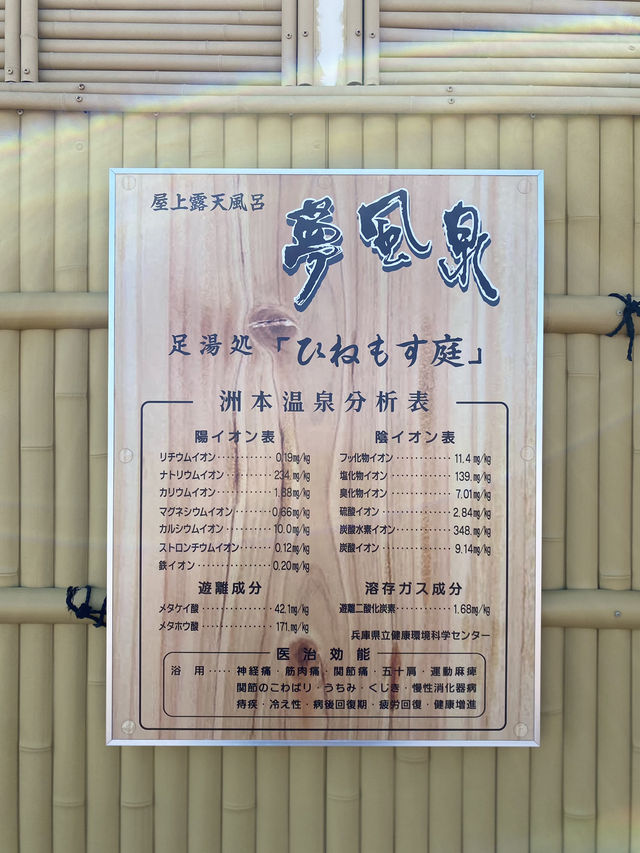 屋上露天風呂
夢風泉
足湯処「ひねもす庭」
洲本温泉分析表
陽イオン表
リチウムイオン・・・・・・・・・・0.19mg/kg
ナトリウムイオン・・・・・・・・234.mg/kg
カリウムイオン・・・・・・・・・・1.88mg/kg
マグネシウムイオン・・・・・・0.66mg/kg
カルシウムイオン・・・・・・・・10.0mg/kg
ストロンチウムイオン・・・・・0.12mg/kg
鉄イオン・・・・・・・・・・・・・・0.20mg/kg
陰イオン表
フッ化物イオン・・・・・・・・・・11.4mg/kg
塩化物イオン・・・・・・・・・・・139.mg/kg
臭化物イオン・・・・・・・・・・・7.01mg/kg
硫酸イオン・・・・・・・・・・・・・2.84mg/kg
炭酸水素イオン・・・・・・・・・348.mg/kg
炭酸イオン・・・・・・・・・・・・・9.14mg/kg
遊離成分
メタケイ酸・・・・・・・・・・・・・42.1mg/kg
メタホウ酸・・・・・・・・・・・・・171.mg/kg
溶存ガス成分
遊離二酸化炭素・・・・・・・・・1.68mg/kg
兵庫県立健康環境科学センター
医治効能
浴用・・・・・神経痛・筋肉痛・関節痛・五十肩・運動麻痺
関節のこわばり・うちみ・くじき・慢性消化器病
痔疾・冷え性・病後回復期・疲労回復・健康増進